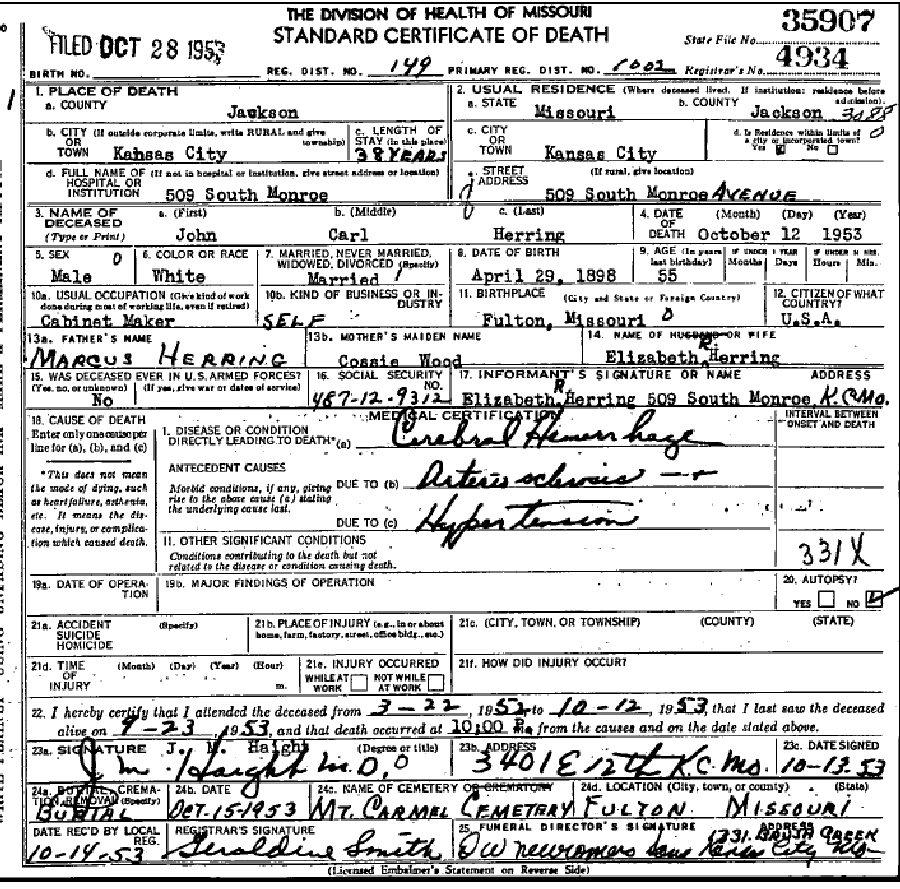 THE DIVISION OF HEALTH OF MISSOURI
STANDARD CERTIFICATE OF DEATH
FILED OCT 28 1953
State File No. 35907
BIRTH NO. REG. DIST. NO. 149 PRIMARY REG. DIST. NO. 1002 Registrar's No. 4934
1. PLACE OF DEATH
a. COUNTY Jackson
2. USUAL RESIDENCE (Where deceased lived. If institution: residence before admission).
a. STATE Missouri b. COUNTY Jackson
b. CITY (If outside corporate limits, write RURAL and give township) OR TOWN Kansas City
c. LENGTH OF STAY (in this place) 38 YEARS
c. CITY OR TOWN Kansas City
d. Is Residence within limits of a city or incorporated town? Yes No
d. FULL NAME OF (If not in hospital or institution, give street address or location) HOSPITAL OR INSTITUTION 509 South Monroe
STREET ADDRESS (If rural, give location) 509 South Monroe AVENUE
3. NAME OF DECEASED (Type or Print) a. (First) John b. (Middle) Carl c. (Last) Herring
4. DATE OF DEATH (Month) (Day) (Year) October 12 1953
5. SEX Male
6. COLOR OR RACE White
7. MARRIED, NEVER MARRIED, WIDOWED, DIVORCED (Specify) Married
8. DATE OF BIRTH April 29, 1898
9. AGE (In years last birthday) 55 IF UNDER 1 YEAR Months Days IF UNDER 24 HRS. Hours Min.
10a. USUAL OCCUPATION (Give kind of work done during most of working life, even if retired) Cabinet Maker
10b. KIND OF BUSINESS OR INDUSTRY SELF
11. BIRTHPLACE (City and State or Foreign Country) Fulton, Missouri
12. CITIZEN OF WHAT COUNTRY? U.S.A.
13a. FATHER'S NAME MARCUS HERRING
13b. MOTHER'S MAIDEN NAME Cossie Wood
14. NAME OF HUSBAND OR WIFE Elizabeth R. Herring
15. WAS DECEASED EVER IN U.S. ARMED FORCES? (Yes, no, or unknown) (If yes, give war or dates of service) No
16. SOCIAL SECURITY NO. 487-12-9312
17. INFORMANT'S SIGNATURE OR NAME ADDRESS Elizabeth R. Herring 509 South Monroe K.C.Mo.
18. CAUSE OF DEATH
Enter only one cause per line for (a), (b), and (c)
* This does not mean the mode of dying, such as heart failure, asthenia, etc. It means the disease, injury, or complication which caused death.
MEDICAL CERTIFICATION
INTERVAL BETWEEN ONSET AND DEATH
I. DISEASE OR CONDITION DIRECTLY LEADING TO DEATH* (a) Cerebral Hemorrhage
ANTECEDENT CAUSES
Morbid conditions, if any, giving rise to the above cause (a) stating the underlying cause last.
DUE TO (b) Arteriosclerosis
DUE TO (c) Hypertension
II. OTHER SIGNIFICANT CONDITIONS
Conditions contributing to the death but not related to the disease or condition causing death.
331X
19a. DATE OF OPERATION
19b. MAJOR FINDINGS OF OPERATION
20. AUTOPSY? YES NO
21a. ACCIDENT SUICIDE HOMICIDE (Specify)
21b. PLACE OF INJURY (e.g., in or about home, farm, factory, street, office bldg., etc.)
21c. (CITY, TOWN, OR TOWNSHIP) (COUNTY) (STATE)
21d. TIME OF INJURY (Month) (Day) (Year) (Hour) m.
21e. INJURY OCCURRED WHILE AT WORK NOT WHILE AT WORK
21f. HOW DID INJURY OCCUR?
22. I hereby certify that I attended the deceased from 3-22, 1952 to 10-12, 1953, that I last saw the deceased
alive on 9-23 1953, and that death occurred at 10:00 P.m., from the causes and on the date stated above.
23a. SIGNATURE J. M. Haight (Degree or title) J. M. Haight M.D.
23b. ADDRESS 3401 E 12th K.C. Mo.
23c. DATE SIGNED 10-13-53
24a. BURIAL, CREMATION, REMOVAL (Specify) BURIAL
24b. DATE OCT-15-1953
24c. NAME OF CEMETERY OR CREMATORY MT. CARMEL CEMETERY
24d. LOCATION (City, town, or county) (State) FULTON, MISSOURI
DATE REC'D BY LOCAL REG. 10-14-53
REGISTRAR'S SIGNATURE Geraldine Smith
25. FUNERAL DIRECTOR'S SIGNATURE ADDRESS DW Newcomers Sons 1331 BRUSH CREEK Kansas City Mo
(Licensed Embalmer's Statement on Reverse Side)